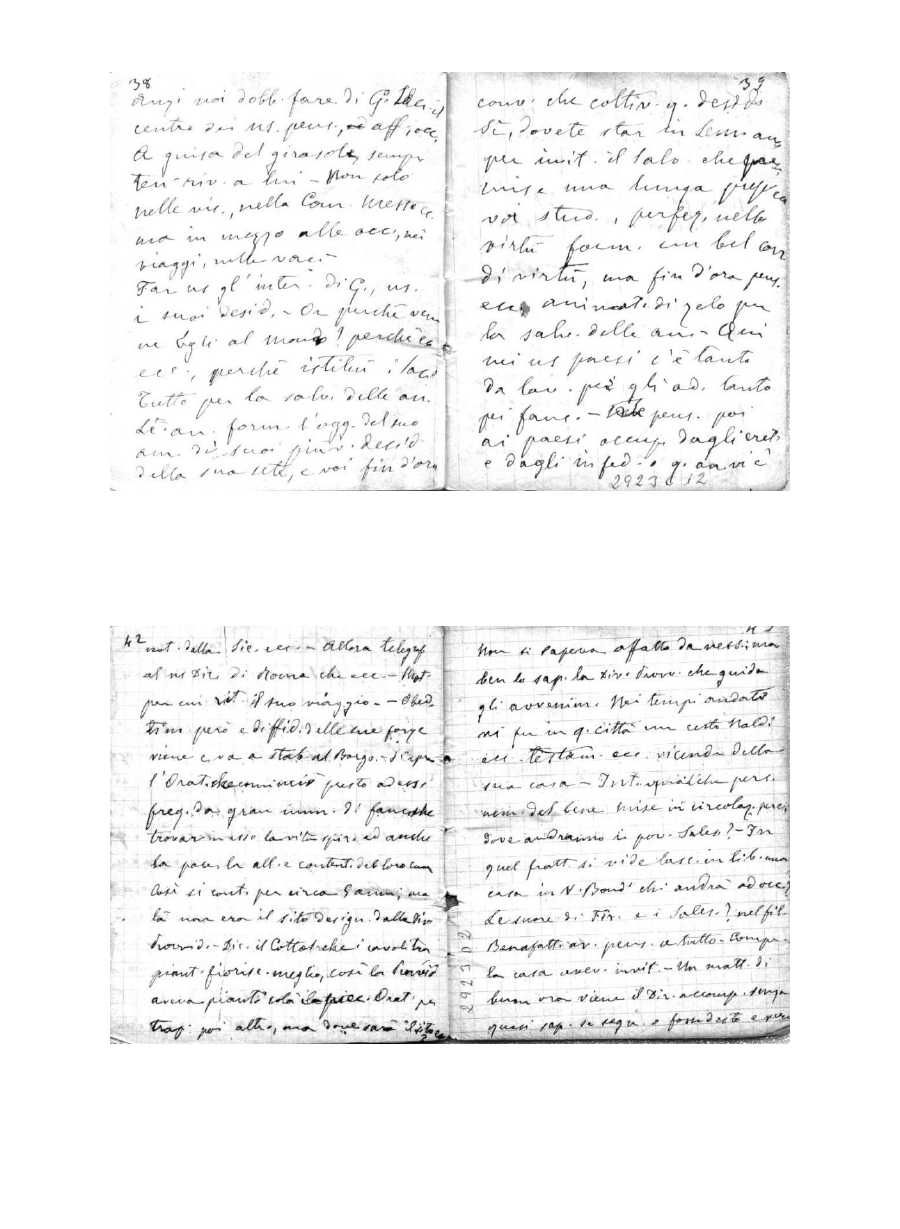 38
Anzi noi dobb. fare di G. il
centro dei ns. pens., ed aff., occ.
A guisa del girasole, sempr.
ten. riv. a lui – Non solo
nelle vis., nella Com. Messa ec.
ma in mezzo alle occ., nei
viaggi, nelle vac. –
Far ns gl'inter. di G., ns.
i suoi desid. – Or perchè ven
ne Egli al mondo? perchè
ecc., perchè istituì i Sac.
Tutto per la salv. delle an.
Le an. form. l'ogg. del suo
am. di suoi desid.
della sua sete, e voi fin d'ora
39
conv. che coltiv. q. desid.
Sì, dovete star in Sem.
per imit. il Salv. che
mise una lunga
voi stud., perfez. nelle
virtù form. un bel cor
di virtù, ma fin d'ora pens.
ecc. animati di zelo per
la salv. delle an. – Qui
nei ns paesi c'è tanto
da lav. per gli ad. tanto
pei fanc. – pens. poi
ai paesi occup. dagli eret.
e dagli infed. o q. an. vi è
2923 12
42
not. della Sic. ecc. – Allora telegraf
al ns Dir. di Roma che ecc –
per cui rit. il suo viaggio. – Obed.
tim. però e diffid. delle sue forze
viene e va a stab. al Borgo.
l'Orat. che cominciò presto ad ess.
freq. da gran num. di fanc. che
trovar. in esso la vita spir. ed anche
la pace, la all. e content. del loro cuor
Così si cont. per circa 5 anni; ma
là non era il sito design. dalla Div
Provvid. – Dic. il Cottol. che i cavoli tra
piant. fioris. meglio, così la Provvid
aveva piantò colà Orat. per
trap. poi altr., ma dove sarà il sito
Non si sapeva affatto da nessuno
ben lo sap. la Div. Provv. che guida
gli avvenim. Nei tempi andati
vi fu in q. città un certo Naldi
ecc. testam. ecc. vicenda della
sua casa – Int. qualche pers.
nem. del bene mise in circolaz.
dove andranno i pov. Sales.? – In
quel fratt. si vide lasc. in lib. una
casa in V. Bondi chi andrà ad occ.?
Le suore di Fir. e i Sales.? nel fil.
Benefatt. av. pens. a tutto – Comper.
la casa avev. invit. – Un matt. di
buon ora viene il Dir. accomp. senza
quasi sap. se segu. o foss desto e